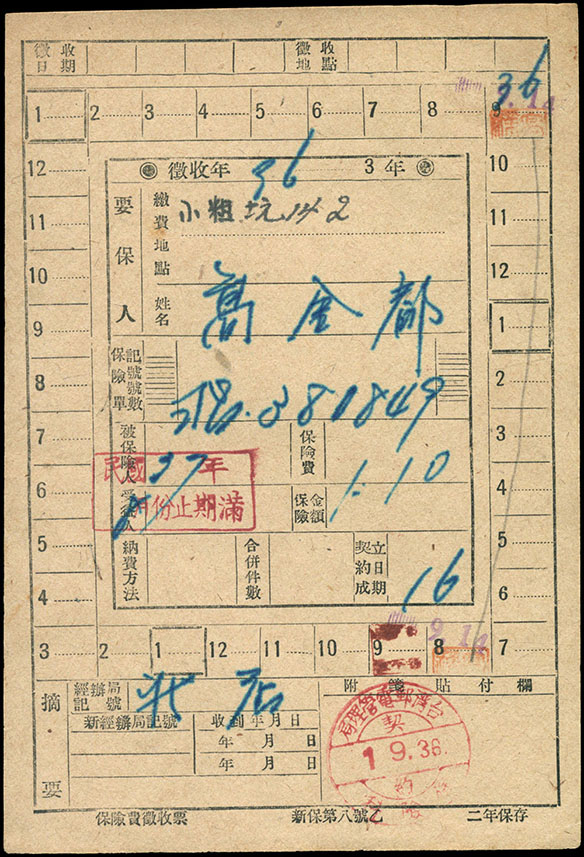 徵收日期
徵收地點
1 2 3 4 5 6 7 8 9
36
9.14
12 11 10 9 8 7 6 5 4 3
10 11 12 1 2 3 4 5 6 7
徵收年 36 3年
要保人
繳費地點 小粗坑142
姓名 萬金都
保險單記號號數 380849
被保險人 保險費 1.10
受益人 保險金額
民國 37 年
份止期滿
納費方法 合併件數 契約成立日期 16
2 1 12 11 10 9 8
9.14
摘要
經辦局記號
附箋貼付欄
新經辦局記號 收到年月日
年 月 日
年 月 日
台灣郵電管理局
契
1 9.36.
約
保險費徵收票 新保第八號乙 二年保存